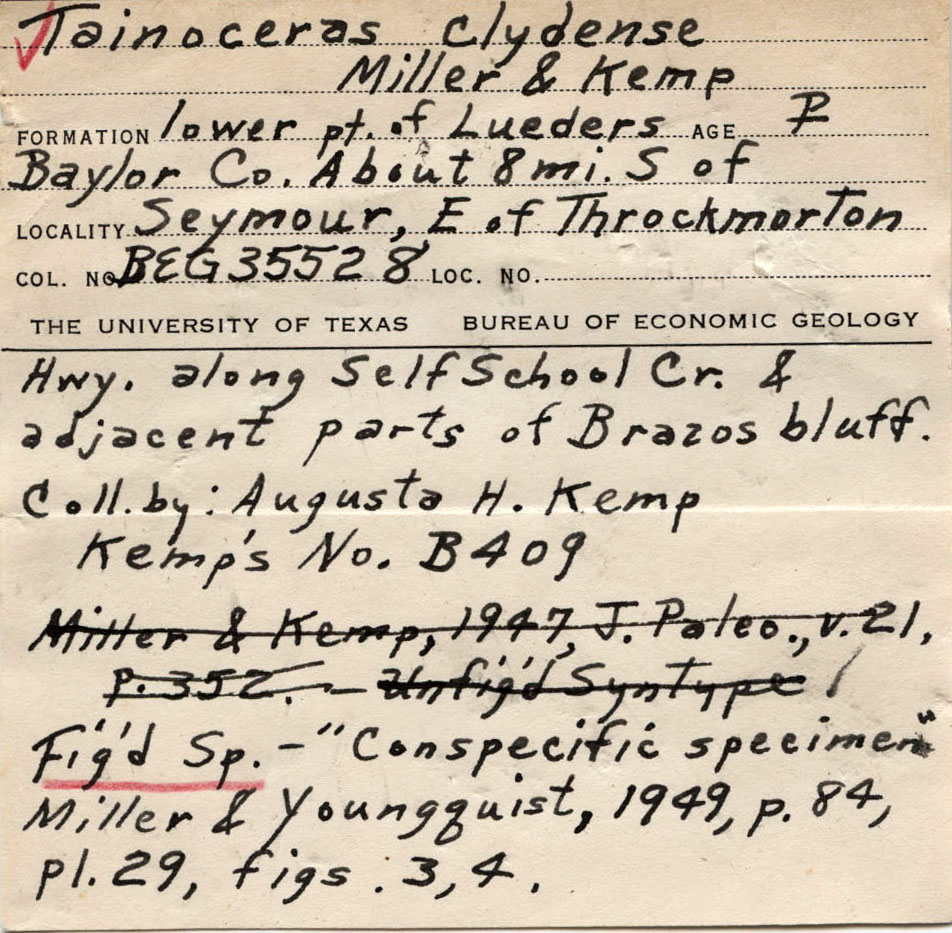 Tainoceras clydense
Miller & Kemp
FORMATION lower pt. of Lueders AGE P
Baylor Co. About 8 mi. S of
LOCALITY Seymour, E of Throckmorton
COL. NO. BEG35528 LOC. NO.
THE UNIVERSITY OF TEXAS BUREAU OF ECONOMIC GEOLOGY
Hwy. along Self School Cr. &
adjacent parts of Brazos bluff.
Coll. by: Augusta H. Kemp
Kemp's No. B409
Miller & Kemp, 1947, J. Paleo., v. 21,
p. 352. — Unfig'd Syntype
Fig'd Sp. - "Conspecific specimen"
Miller & Youngquist, 1949, p. 84,
pl. 29, figs. 3, 4.